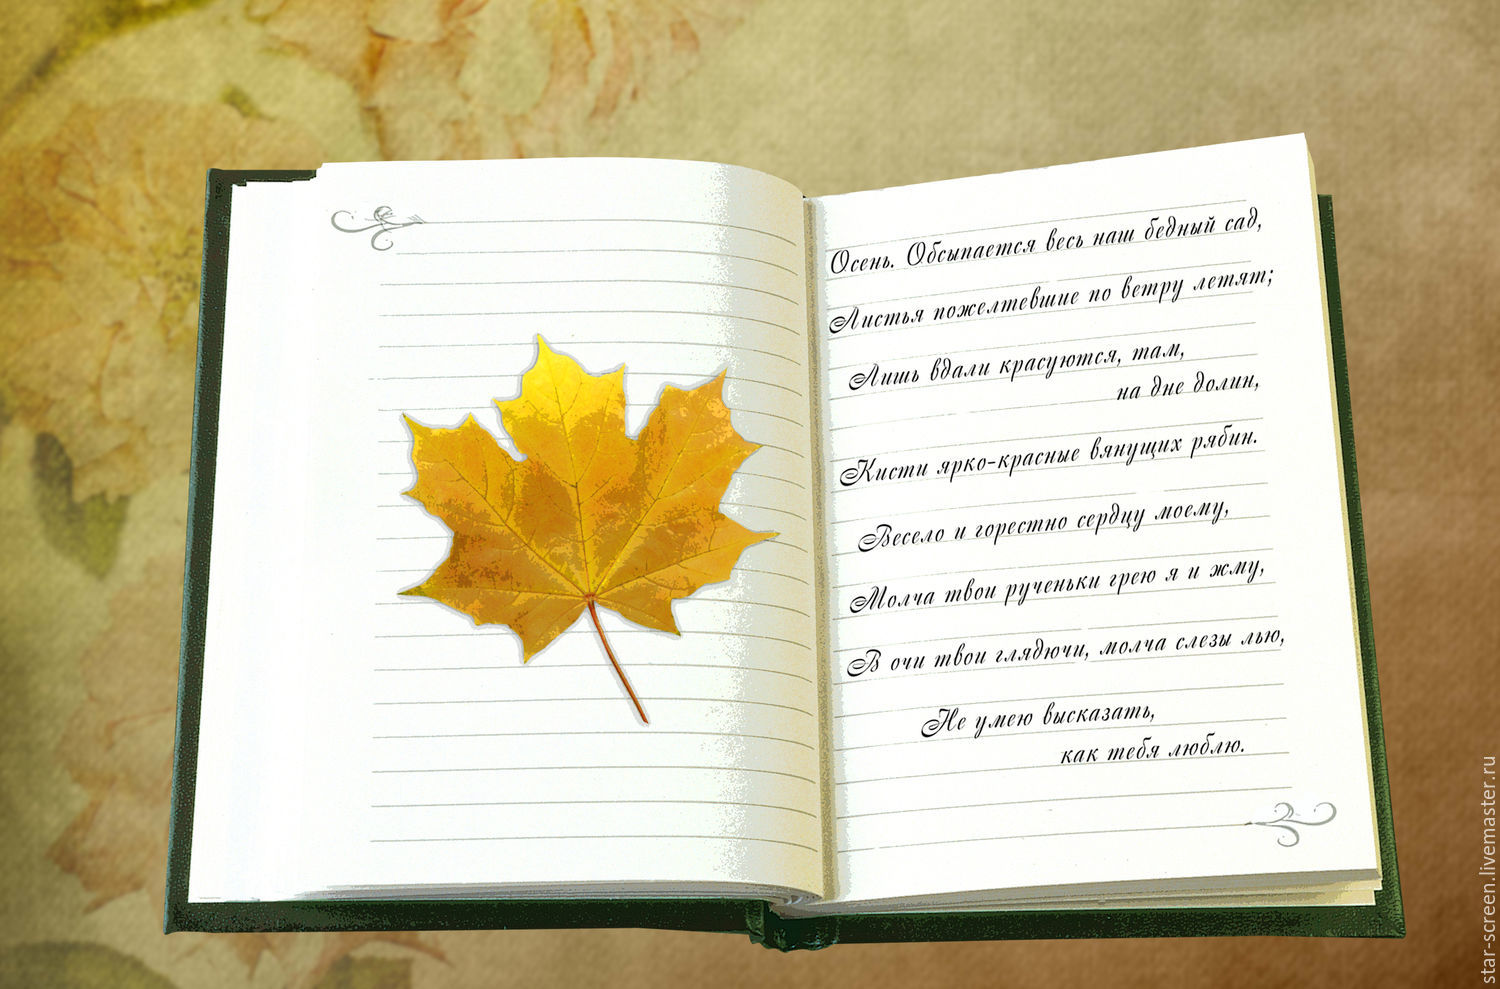 Осень. Обсыпается весь наш бедный сад,
Листья пожелтевшие по ветру летят;
Лишь вдали красуются, там,
на дне долин,
Кисти ярко-красные вянущих рябин.
Весело и горестно сердцу моему,
Молча твои рученьки грею я и жму,
В очи твои глядючи, молча слезы лью,
Не умею высказать,
как тебя люблю.
star-screen.livemaster.ru